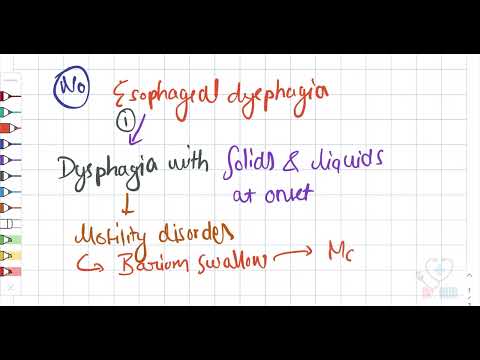 No Esophageal dysphagia
1
Dysphagia with Solids & liquids
at onset
Motility disorder
Barium swallow → Mc